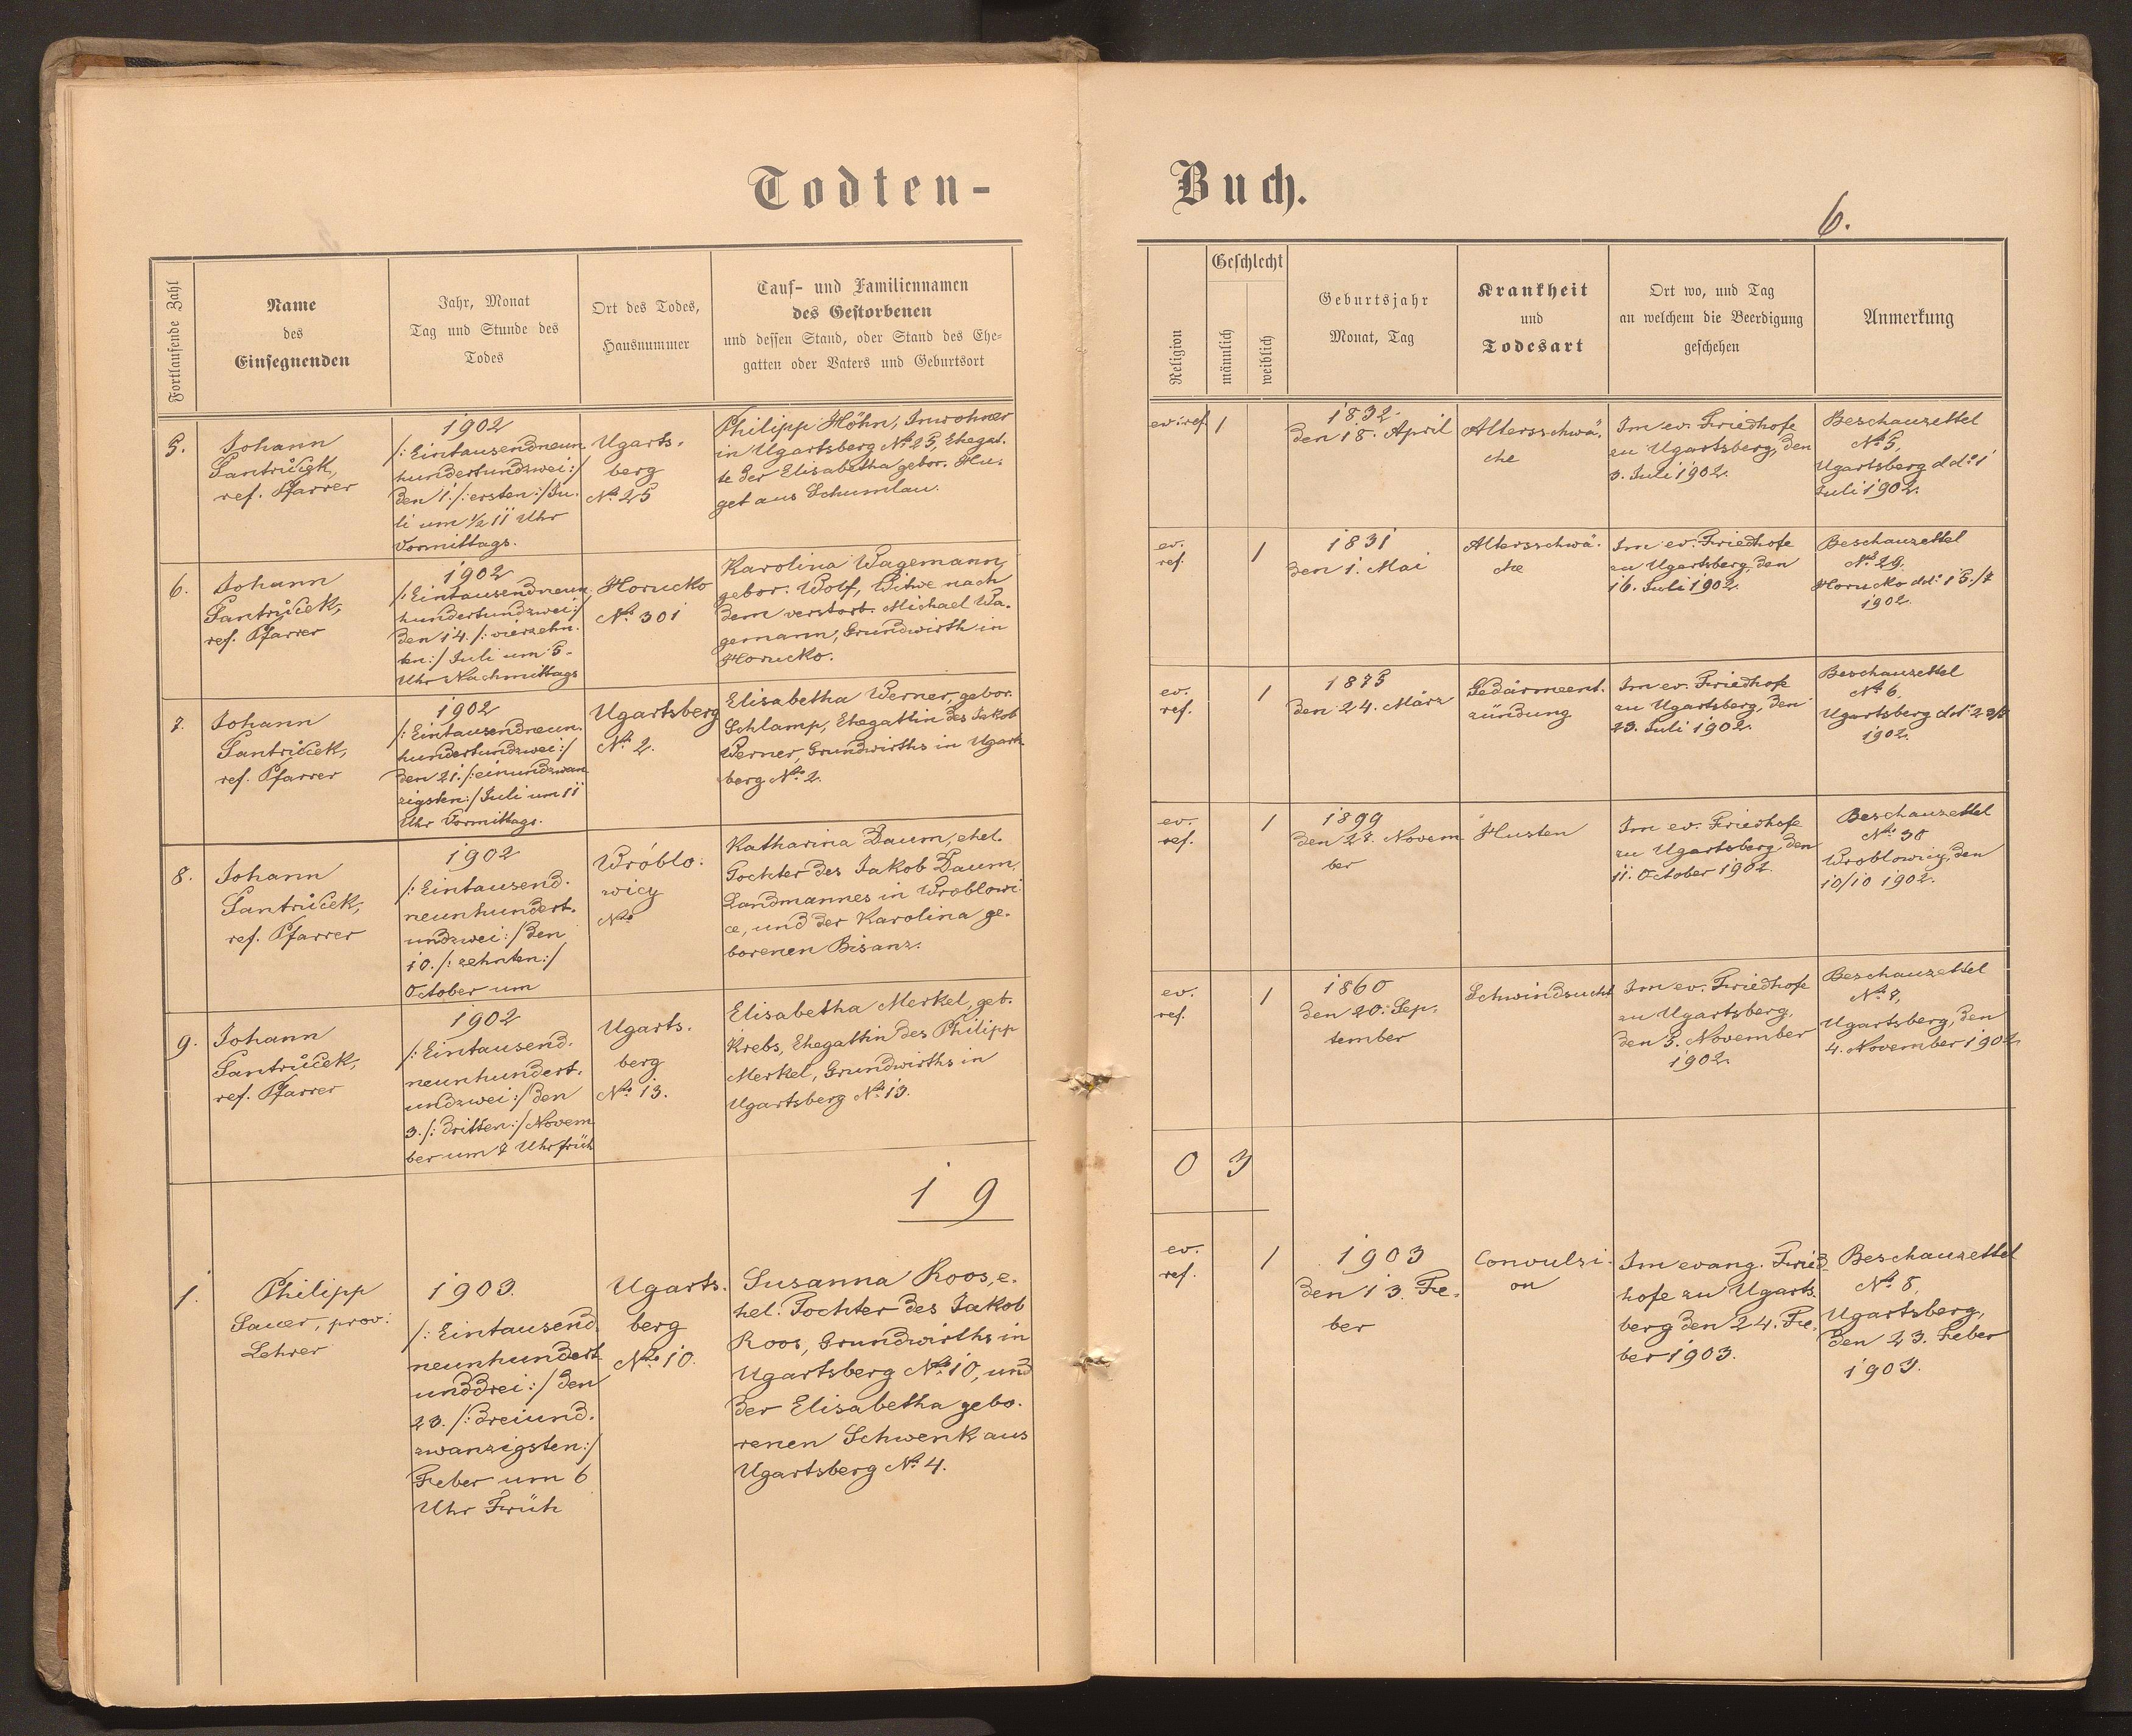 Todten-
Buch.
6.
Fortlaufende Zahl
Name
des
Einsegnenden
Jahr, Monat
Tag und Stunde des
Todes
Ort des Todes,
Hausnummer
Tauf- und Familiennamen
des Gestorbenen
und dessen Stand, oder Stand des Ehe-
gatten oder Vaters und Geburtsort
Religion
Geschlecht
männlich
weiblich
Geburtsjahr
Monat, Tag
Krankheit
und
Todesart
Ort wo, und Tag
an welchem die Beerdigung
geschehen
Anmerkung
5.
Johann
Jantrůček,
ref. Pfarrer
1902
/: Eintausendneun
hundertundzwei :/
den 1. /: ersten :/ Ju-
li um ½ 11 Uhr
Vormittags.
Ugarts-
berg
No 25
Philipp Höhn, Inwohner
in Ugartsberg No 25, Ehegat-
te der Elisabetha gebor. Hu-
get aus Schumlau.
ev. ref.
1
1832.
den 18. April
Altersschwä-
che
Im ev. Friedhofe
zu Ugartsberg, den
3. Juli 1902.
Beschauzettel
No 5,
Ugartsberg ddo 1
Juli 1902.
6.
Johann
Jantrůček,
ref. Pfarrer
1902
/: Eintausendneun
hundertundzwei :/
den 14. /: vierzehn-
ten :/ Juli um 5-
Uhr Nachmittags
Horucko
No 301
Karolina Wagemann,
gebor. Wolf, Witwe nach
dem verstorb. Michael Wa-
gemann, Grundwirth in
Horucko.
ev.
ref.
1
1831
den 1. Mai
Altersschwä-
che
Im ev. Friedhofe
zu Ugartsberg, den
16. Juli 1902.
Beschauzettel
No 29.
Horucko ddo 15./7
1902.
7.
Johann
Jantrůček,
ref. Pfarrer
1902
/: Eintausendneun-
hundertundzwei :/
den 21. /: einundzwan
zigsten :/ Juli um 11
Uhr Vormittags.
Ugartsberg
No 2.
Elisabetha Werner, gebor.
Schlamp, Ehegattin des Jakob
Werner, Grundwirths in Ugarts
berg No 2.
ev.
ref.
1
1875
den 24. März
Gedärmeent-
zündung
Im ev. Friedhofe
zu Ugartsberg, den
23. Juli 1902.
Beschauzettel
No 6,
Ugartsberg ddo
1902.
8.
Johann
Jantrůček,
ref. Pfarrer
1902
/: Eintausend-
neunhundert-
undzwei :/ den
10. /: zehnten :/
October um
Wróblo-
wicy
No
Katharina Daum, ehel.
Tochter des Jakob Daum,
Landmannes in Wroblowi
ce, und der Karolina ge-
borenen Bisanz.
ev.
ref.
1
1899
den 27. Novem
ber
Husten
Im ev. Friedhofe
zu Ugartsberg, den
11. October 1902.
Beschauzettel
No 30
Wroblowicy, den
10/10 1902.
9.
Johann
Jantrůček,
ref. Pfarrer
1902
/: Eintausend-
neunhundert-
undzwei :/ den
3. /: dritten :/ Novem
ber um 7 Uhr früh
Ugarts-
berg
No 13.
Elisabetha Merkel, geb.
Krebs, Ehegattin des Philipp
Merkel, Grundwirths in
Ugartsberg No 13.
ev.
ref.
1
1860
den 20. Sep-
tember
Schwindsucht
Im ev. Friedhofe
zu Ugartsberg,
den 5. November
1902.
Beschauzettel
No 7,
Ugartsberg, den
4. November 1902.
1 9
0 3
1.
Philipp
Sauer, prov.
Lehrer
1903.
/: Eintausend-
neunhundert
unddrei :/ den
23. /: dreiund-
zwanzigsten :/
Feber um 6
Uhr Früh
Ugarts-
berg
No 10.
Susanna Roos, e-
hel. Tochter des Jakob
Roos, Grundwirths in
Ugartsberg No 10, und
der Elisabetha gebo-
renen Schwenk aus
Ugartsberg No 4.
ev.
ref.
1
1903
den 13. Fe-
ber
Convulsi-
on
Im evang. Fried-
hofe zu Ugarts-
berg den 24. Fe-
ber 1903.
Beschauzettel
No 8,
Ugartsberg,
den 23. Feber
1903.